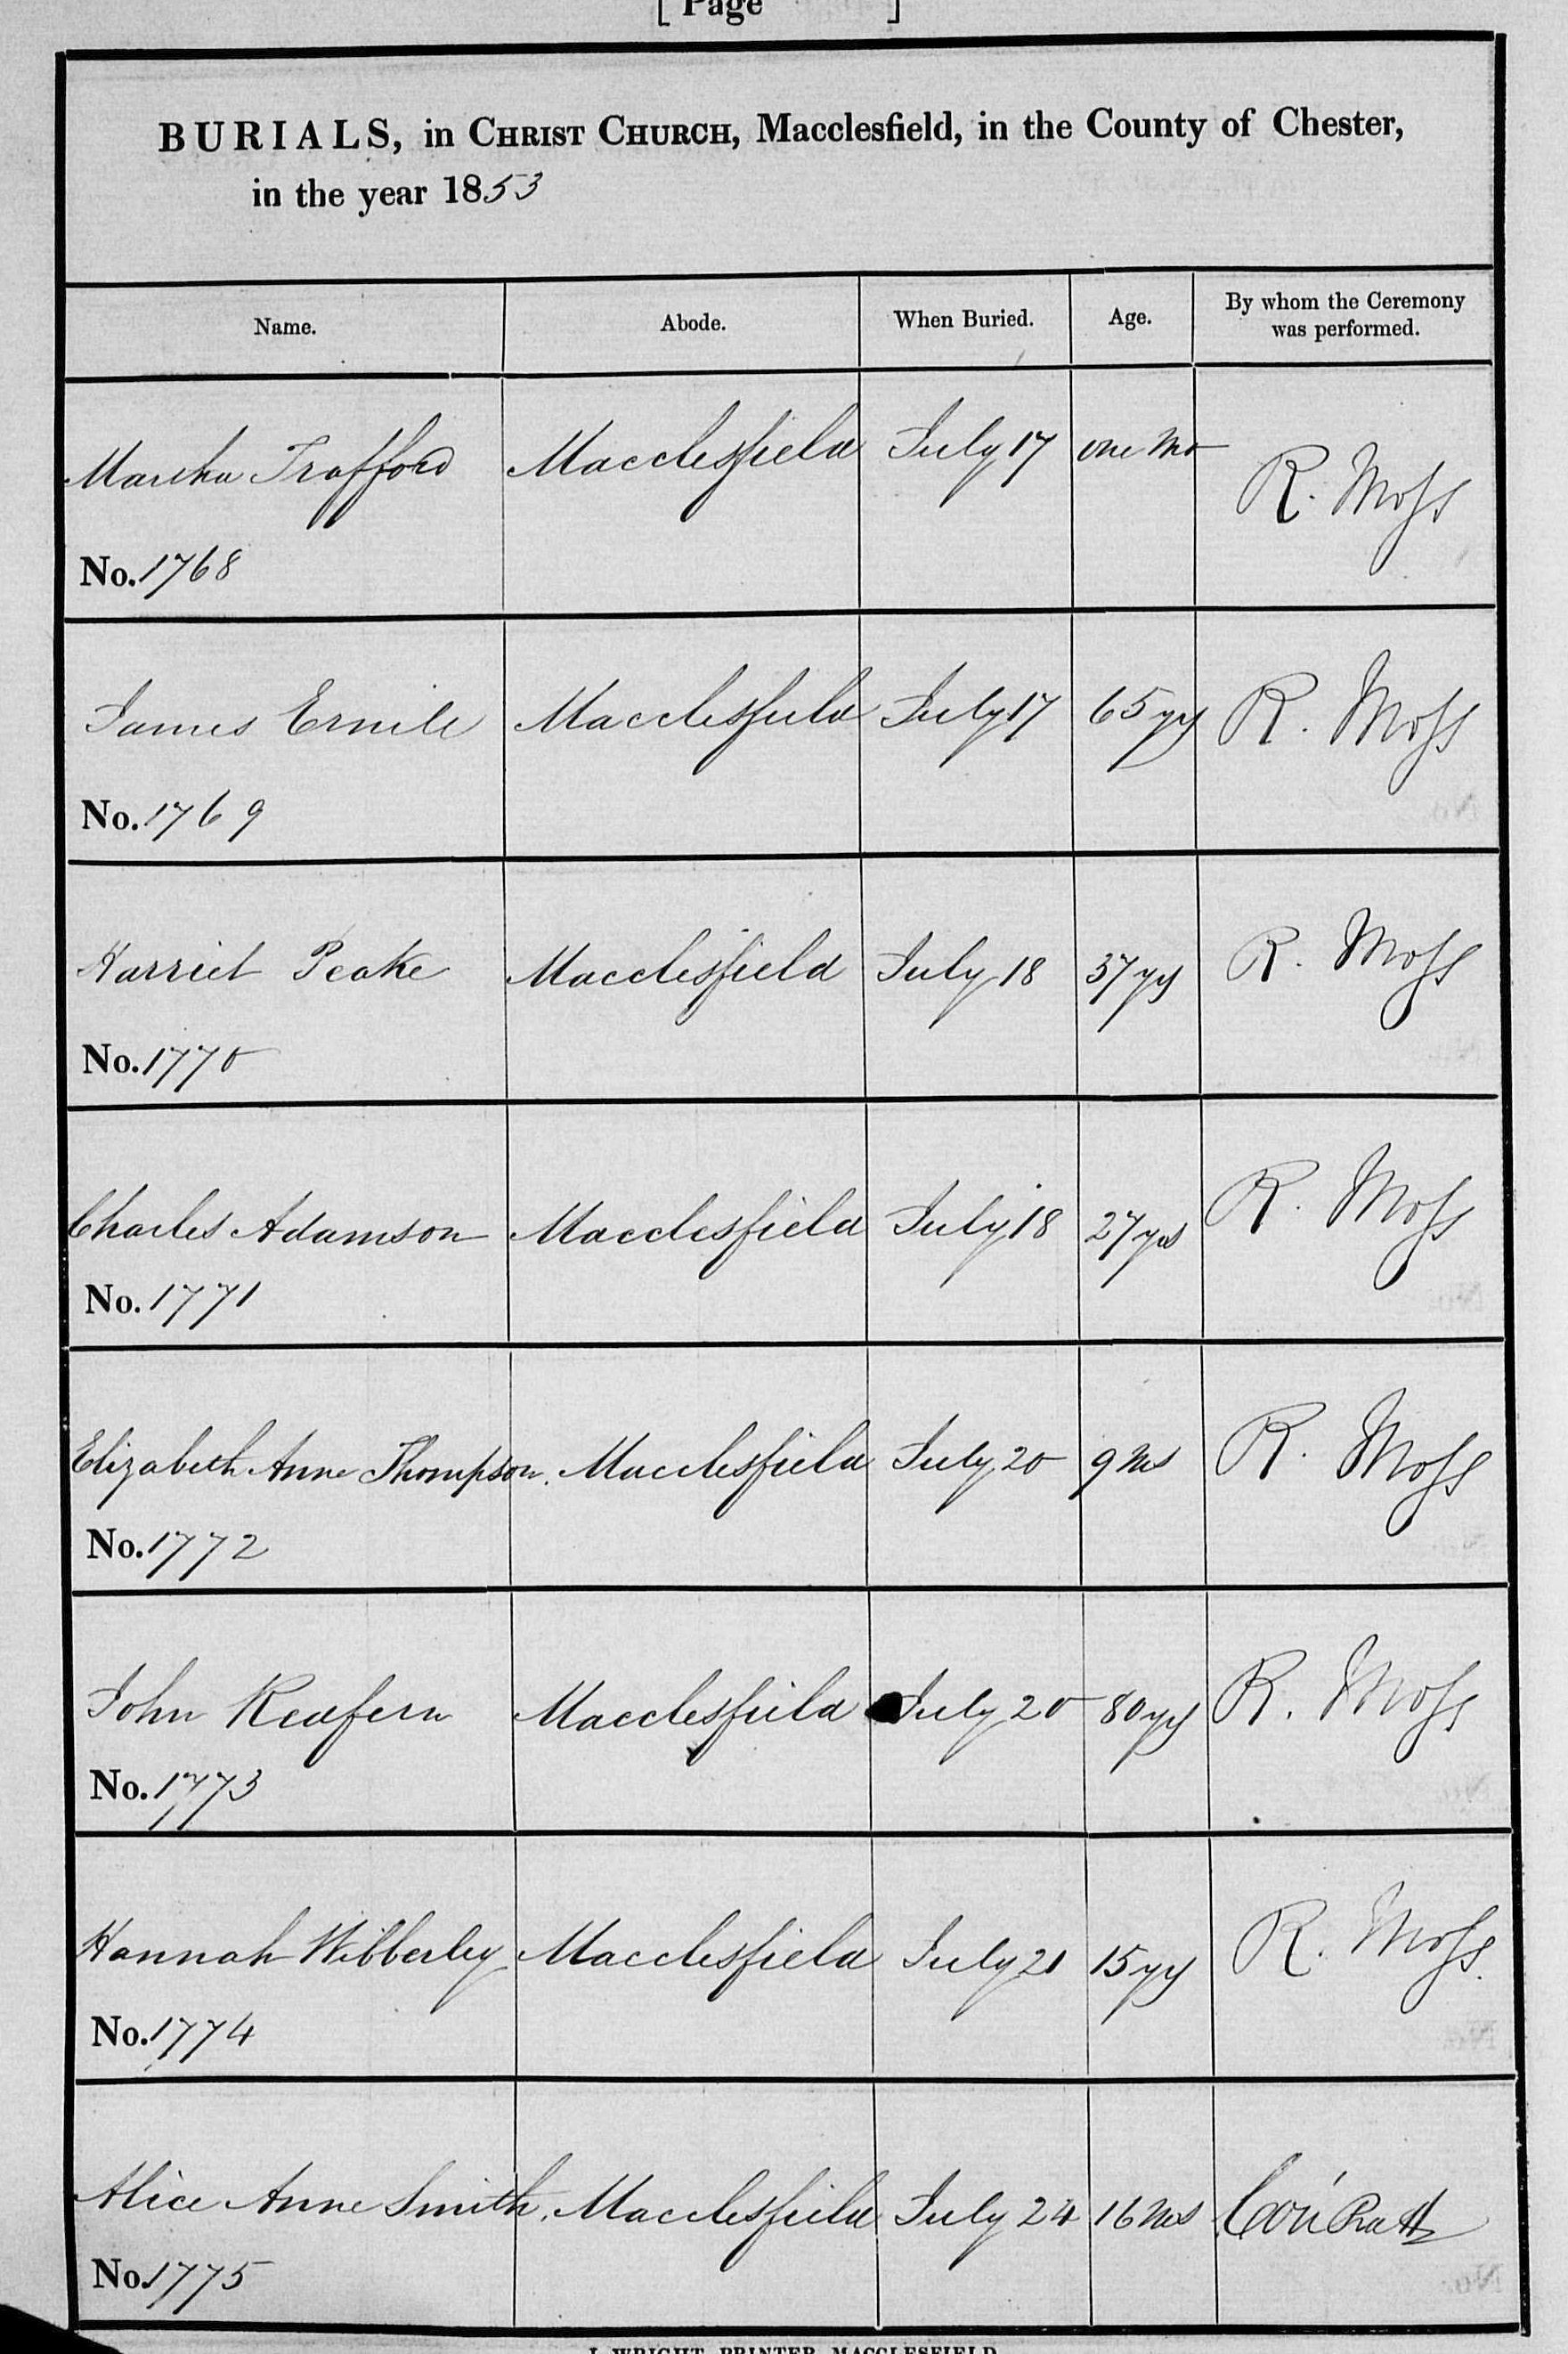 [ Page ]
BURIALS, in CHRIST CHURCH, Macclesfield, in the County of Chester,
in the year 1853
Name. Abode. When Buried. Age. By whom the Ceremony
was performed.
Martha Trafford Macclesfield July 17 one Mo R. Moss
No. 1768
James Ernill Macclesfield July 17 65 yrs R. Moss
No. 1769
Harriet Peake Macclesfield July 18 37 yrs R. Moss
No. 1770
Charles Adamson Macclesfield July 18 27 yrs R. Moss
No. 1771
Elizabeth Anne Thompson. Macclesfield July 20 9 Ms R. Moss
No. 1772
John Redfern Macclesfield July 20 80 yrs R. Moss
No. 1773
Hannah Wibberley Macclesfield July 21 15 yrs R. Moss.
No. 1774
Alice Anne Smith. Macclesfield July 24 16 Mos
No. 1775
J. WRIGHT, PRINTER, MACCLESFIELD